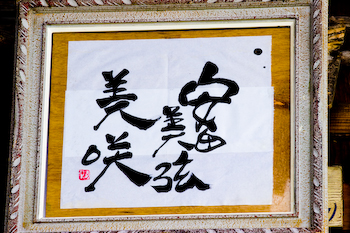 安美弦
美咲